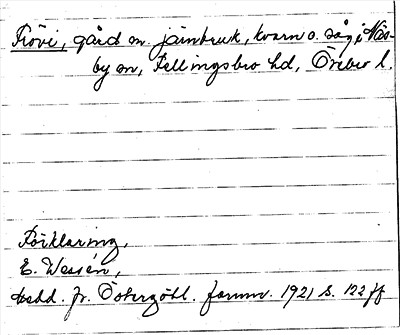 Frövi, gård m. järnbruk, kvarn o. såg i Näs-
by sn, Fellingsbro hd, Örebro l.
Förklaring,
E. Wessén,
Medd. fr. Östergötl. fornm. 1921 s. 122 ff